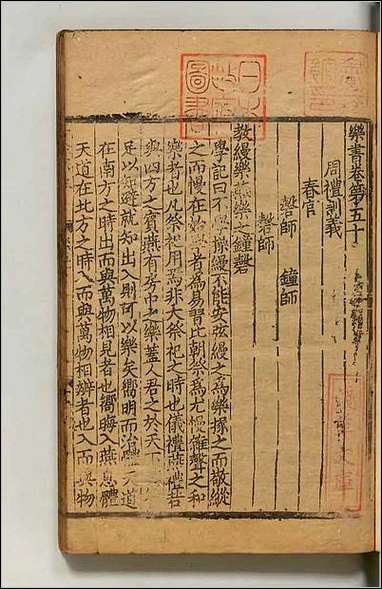 樂書卷第五十
周禮訓義
春官
磬師 鐘師
磬師
教縵樂燕樂之鐘磬
學記曰不學操縵不能安弦縵之為樂操之而敬縱
之而慢在始學者為易習比朝祭為尤慢雜聲之和
樂者也凡祭祀用焉非大祭祀之時也儀禮燕禮若
與四方之賓燕有房中之樂蓋人君之於天下
足以知避就知出入則可以樂矣嚮明而治天道
在南方之時出而與萬物相見者也嚮晦入燕息體
天道在北方之時入而與萬物相辨者也入而與物
圖書